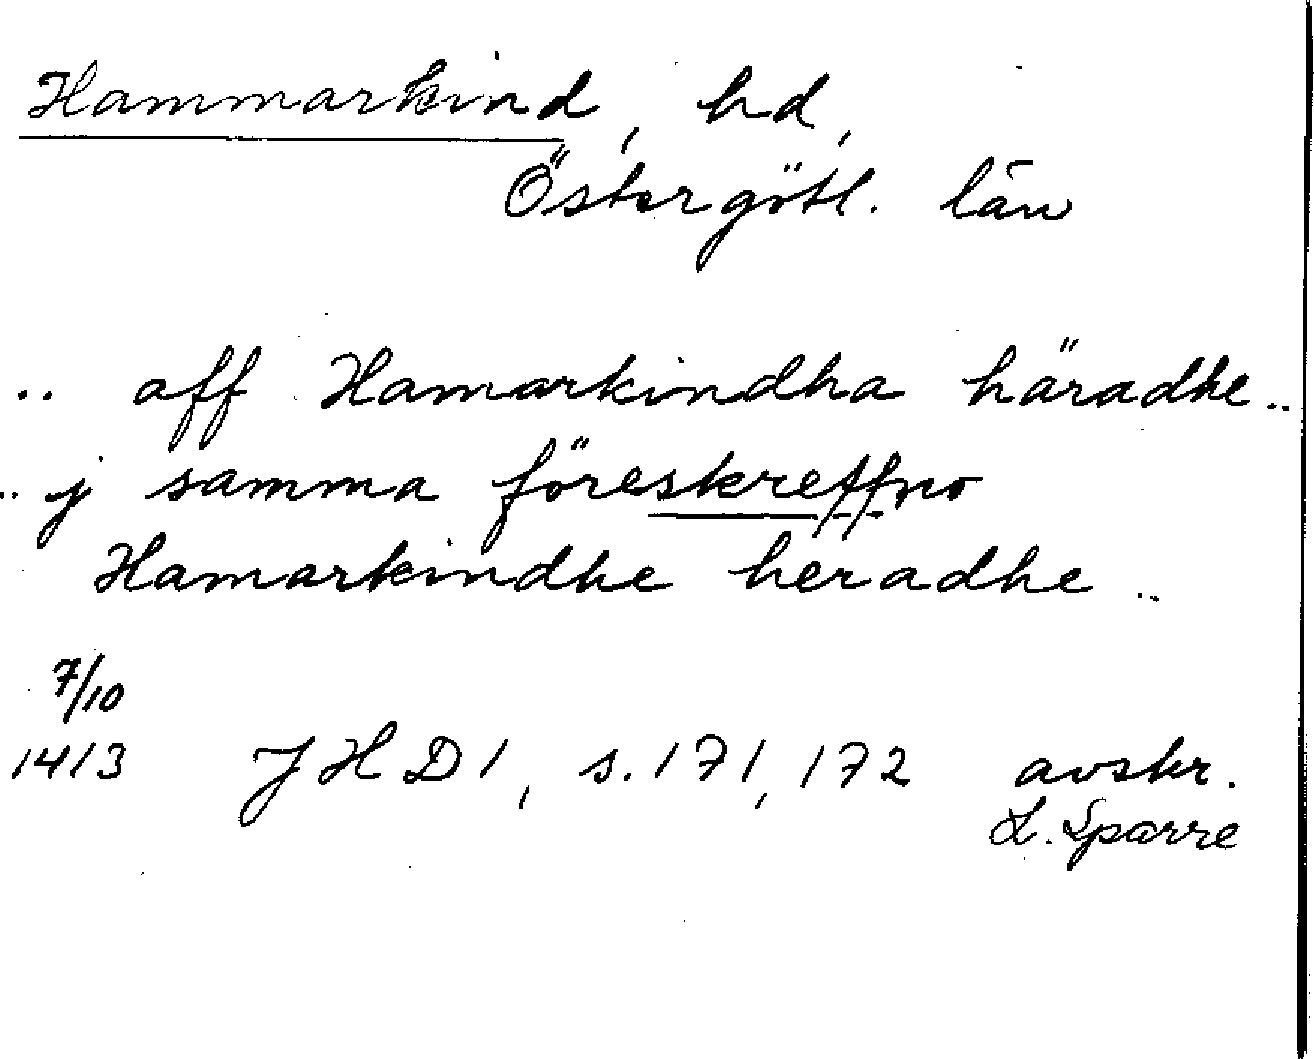 Hammarkind, hd,
Östergötl. län
.. aff Hamarkindha häradhe ..
.. j samma föreskreffno
Hamarkindhe heradhe ..
7/10
1413 JHD 1, s. 171, 172 avskr.
L. Sparre